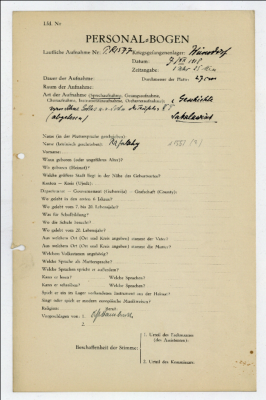 Lfd. Nr.
PERSONAL-BOGEN
Lautliche Aufnahme Nr.: Kriegsgefangenenlager: Wünsdorf
Datum:
Zeitangabe:
Dauer der Aufnahme: Durchmesser der Platte: 27 cm
Raum der Aufnahme:
Art der Aufnahme (Sprechaufnahme, Gesangsaufnahme, Geschichte
Choraufnahme, Instrumentenaufnahme, Orchesteraufnahme):
(abgelesen) Sakalavisch
Name (in der Muttersprache geschrieben):
Name (lateinisch geschrieben):
Vorname:
Wann geboren (oder ungefähres Alter)?
Wo geboren (Heimat)?
Welche größere Stadt liegt in der Nähe des Geburtsortes?
Kanton — Kreis (Ujedz):
Departement — Gouvernement (Gubernija) — Grafschaft (County):
Wo gelebt in den ersten 6 Jahren?
Wo gelebt vom 7. bis 20. Lebensjahr?
Was für Schulbildung?
Wo die Schule besucht?
Wo gelebt vom 20. Lebensjahr?
Aus welchem Ort (Ort und Kreis angeben) stammt der Vater?
Aus welchem Ort (Ort und Kreis angeben) stammt die Mutter?
Welchem Volksstamm angehörig?
Welche Sprache als Muttersprache?
Welche Sprachen spricht er außerdem?
Kann er lesen? Welche Sprachen?
Kann er schreiben? Welche Sprachen?
Spielt er ein im Lager vorhandenes Instrument aus der Heimat?
Singt oder spielt er modern europäische Musikweisen?
Religion: Beruf:
Vorgeschlagen von: 1.
2.
Beschaffenheit der Stimme:
1. Urteil des Fachmannes
(des Assistenten):
2. Urteil des Kommissars: